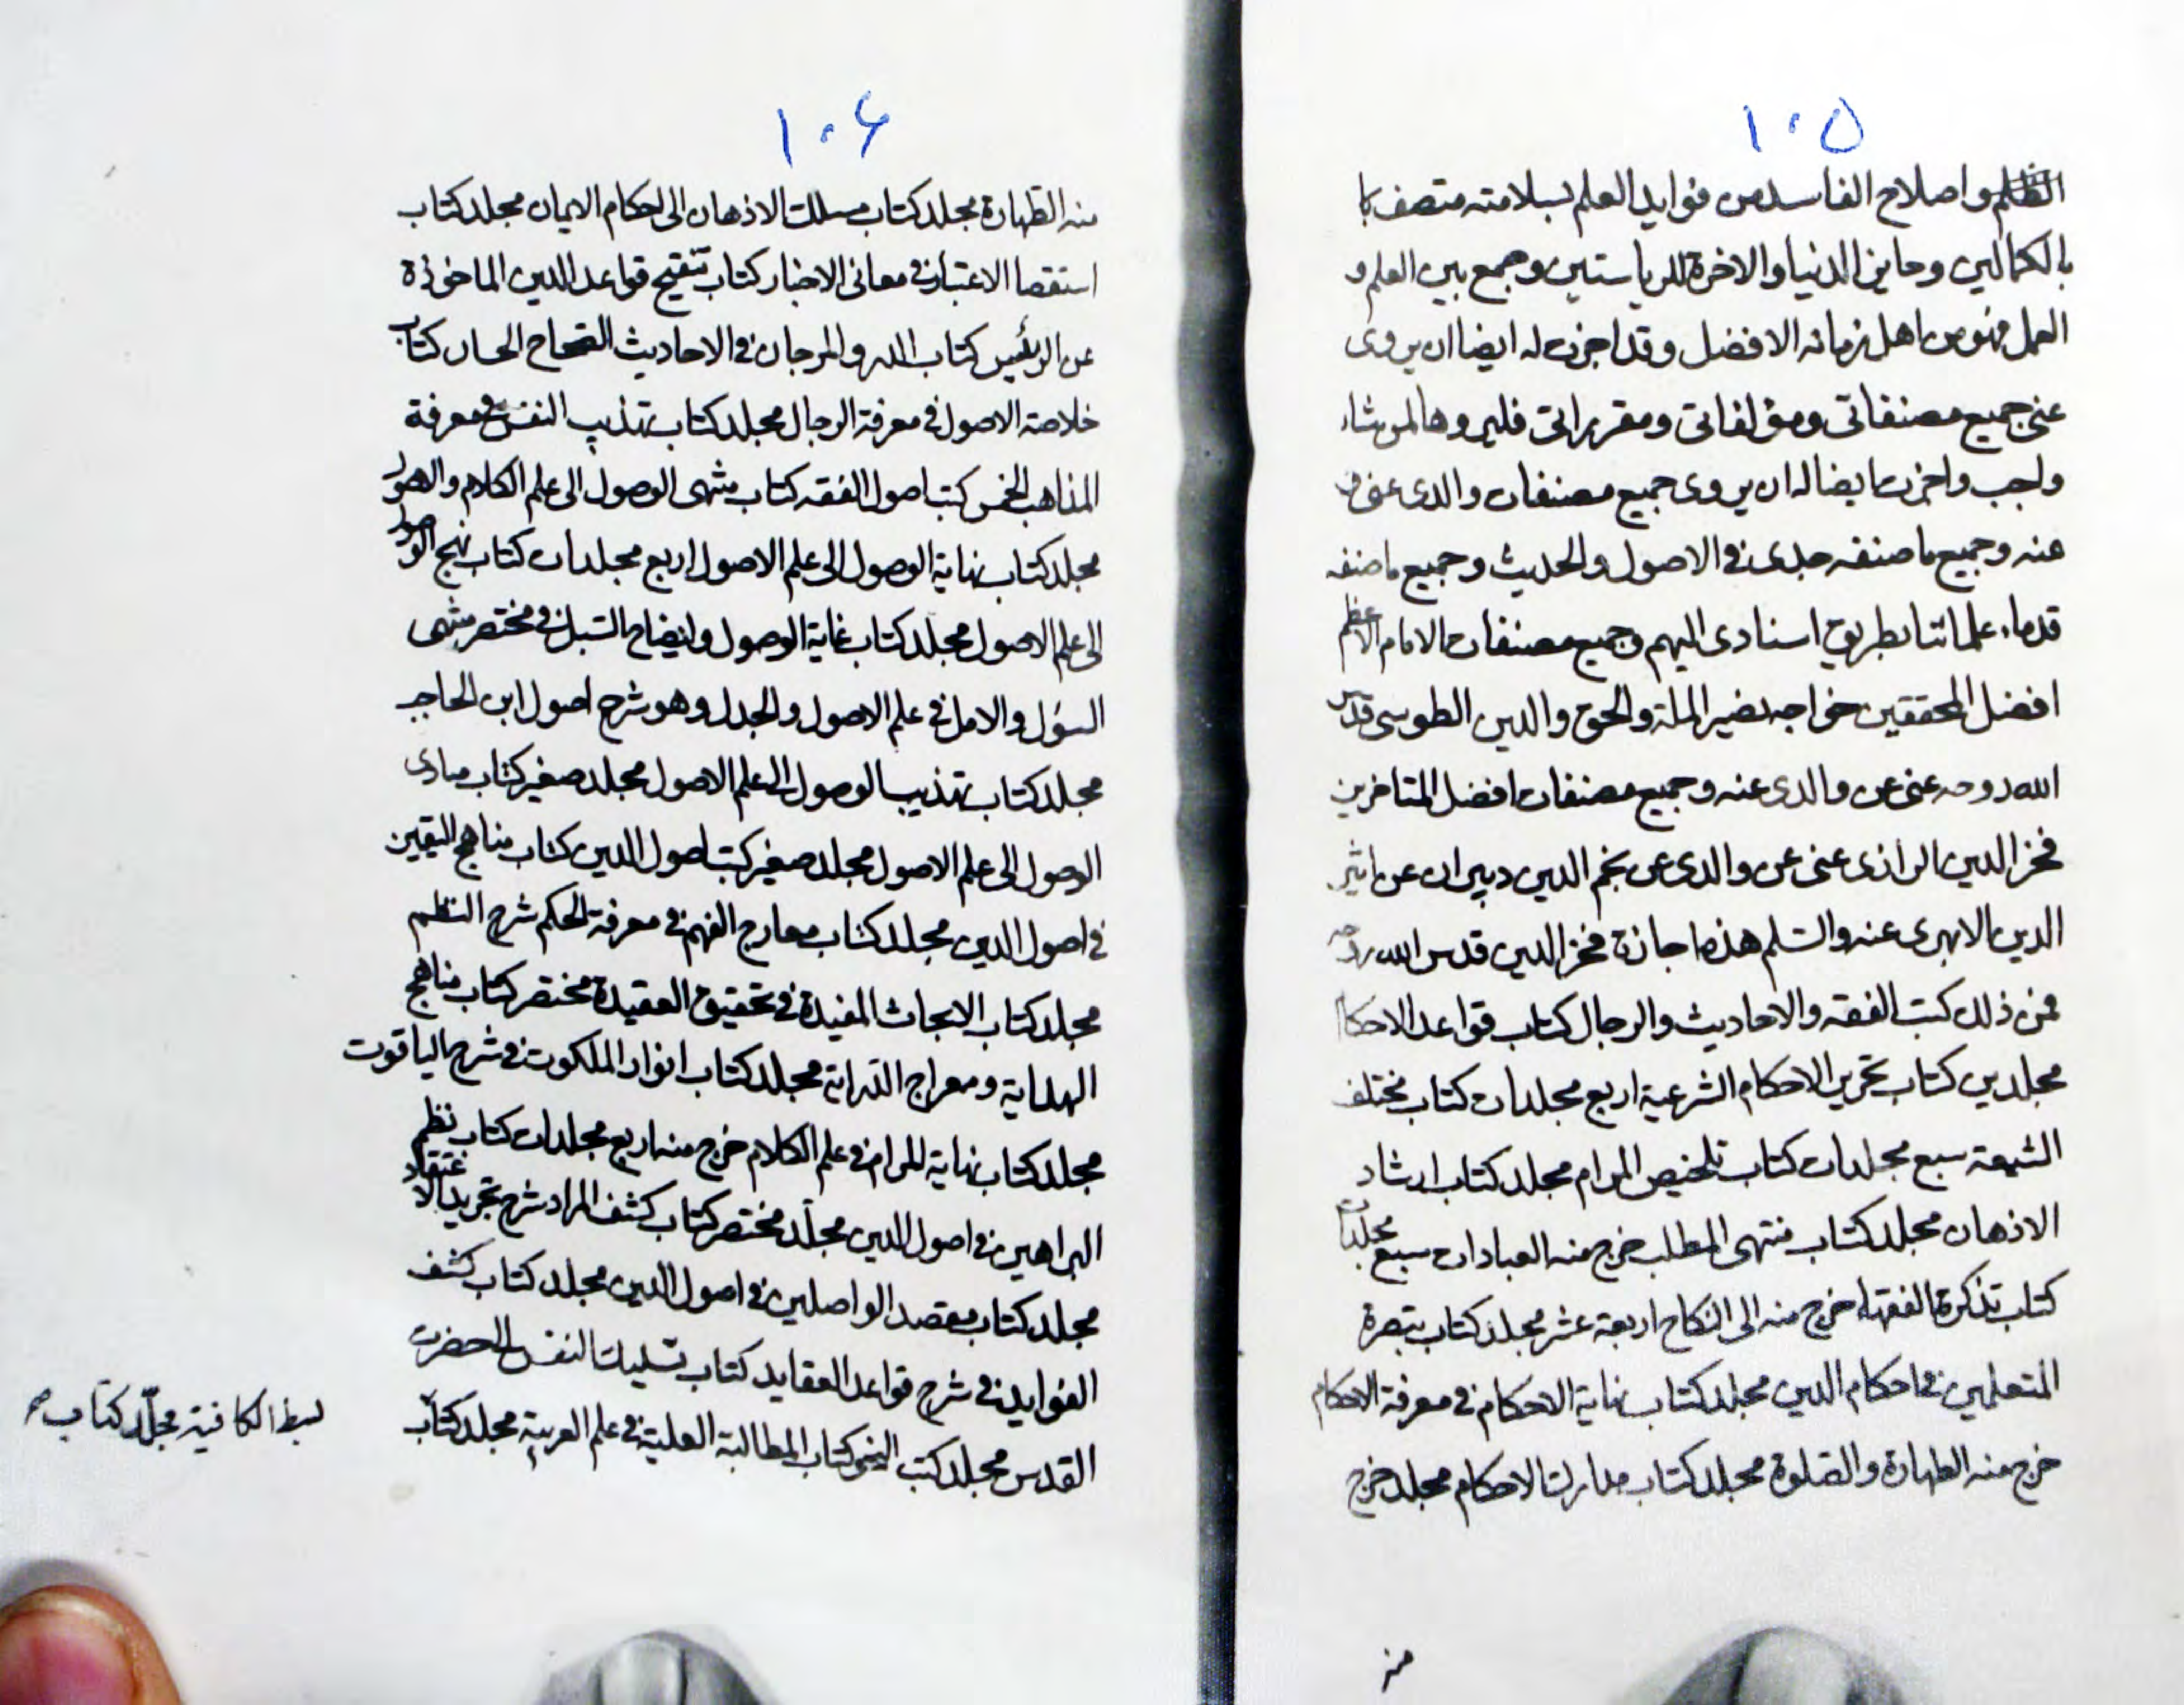 ١٠٥
الظلم واصلاح الفاسد من فوايد العلم لسلامته متصف با
بالكمالين وحايز الدنيا والاخرة للرياستين وجمع بين العلم و
العمل فهو من اهل زمانه الافضل وقد اجزت له ايضا ان يروى
عنى جميع مصنفاتى ومؤلفاتى ومقرراتى فليروها لمن شاء
واجب واجزت ايضا له ان يروى جميع مصنفات والدى عنى
عنه وجميع ما صنفه جدى فى الاصول والحديث وجميع ما صنفه
قدماء علمائنا بطريق اسنادى اليهم وجميع مصنفات الامام الاعظم
افضل المحققين خواجه نصير الملة والحق والدين الطوسى قدس
الله روحه عنى عن والدى عنه وجميع مصنفات افضل المتاخرين
فخر الدين الرازى عنى عن والدى عن نجم الدين دبيران عن اثير
الدين الابهرى عنه والسلم هذه اجازة فخر الدين قدس الله روحه
فمن ذلك كتب الفقه والاحاديث والرجال كتاب قواعد الاحكام
مجلدين كتاب تحرير الاحكام الشرعية اربع مجلدات كتاب مختلف
الشيعة سبع مجلدات كتاب تلخيص المرام مجلد كتاب ارشاد
الاذهان مجلد كتاب منتهى المطلب خرج منه العبادات سبع مجلدات
كتاب تذكرة الفقهاء خرج منه الى النكاح اربعة عشر مجلد كتاب تبصرة
المتعلمين فى احكام الدين مجلد كتاب نهاية الاحكام فى معرفة الاحكام
خرج منه الطهارة والصلوة مجلد كتاب مدارك الاحكام مجلد خرج
منه
١٠۶
منه الطهارة مجلد كتاب مسلك الاذهان الى احكام الايمان مجلد كتاب
استقصا الاعتبار فى معانى الاخبار كتاب تنقيح قواعد الدين الماخوذة
عن الرئيس كتاب الدر والمرجان فى الاحاديث الصحاح الحسان كتاب
خلاصة الاصول فى معرفة الرجال مجلد كتاب تهذيب النفس فى معرفة
المذاهب الخمس كتب اصول الفقه كتاب منتهى الوصول الى علم الكلام والاصول
مجلد كتاب نهاية الوصول الى علم الاصول اربع مجلدات كتاب نهج الوصول
الى علم الاصول مجلد كتاب غاية الوصول وايضاح السبل فى مختصر منتهى
السؤل والامل فى علم الاصول والجدل وهو شرح اصول ابن الحاجب
مجلد كتاب تهذيب الوصول الى علم الاصول مجلد صغير كتاب مبادى
الوصول الى علم الاصول مجلد صغير كتب اصول الدين كتاب مناهج اليقين
فى اصول الدين مجلد كتاب معارج الفهم فى معرفة الحكم شرح النظم
مجلد كتاب الابحاث المفيدة فى تحقيق العقيدة مختصر كتاب مناهج
الهداية ومعراج الدراية مجلد كتاب انوار الملكوت فى شرح الياقوت
مجلد كتاب نهاية المرام فى علم الكلام خرج منه اربع مجلدات كتاب نظم
البراهين فى اصول الدين مجلد مختصر كتاب كشف المراد شرح تجريد الاعتقاد
مجلد كتاب مقصد الواصلين فى اصول الدين مجلد كتاب كشف
الفوايد فى شرح قواعد العقايد كتاب تسليك النفس الى حضرت
القدس مجلد كتب النحو كتاب المطالبة العلية فى علم العربية مجلد كتاب
بسط الكافية مجلد كتاب